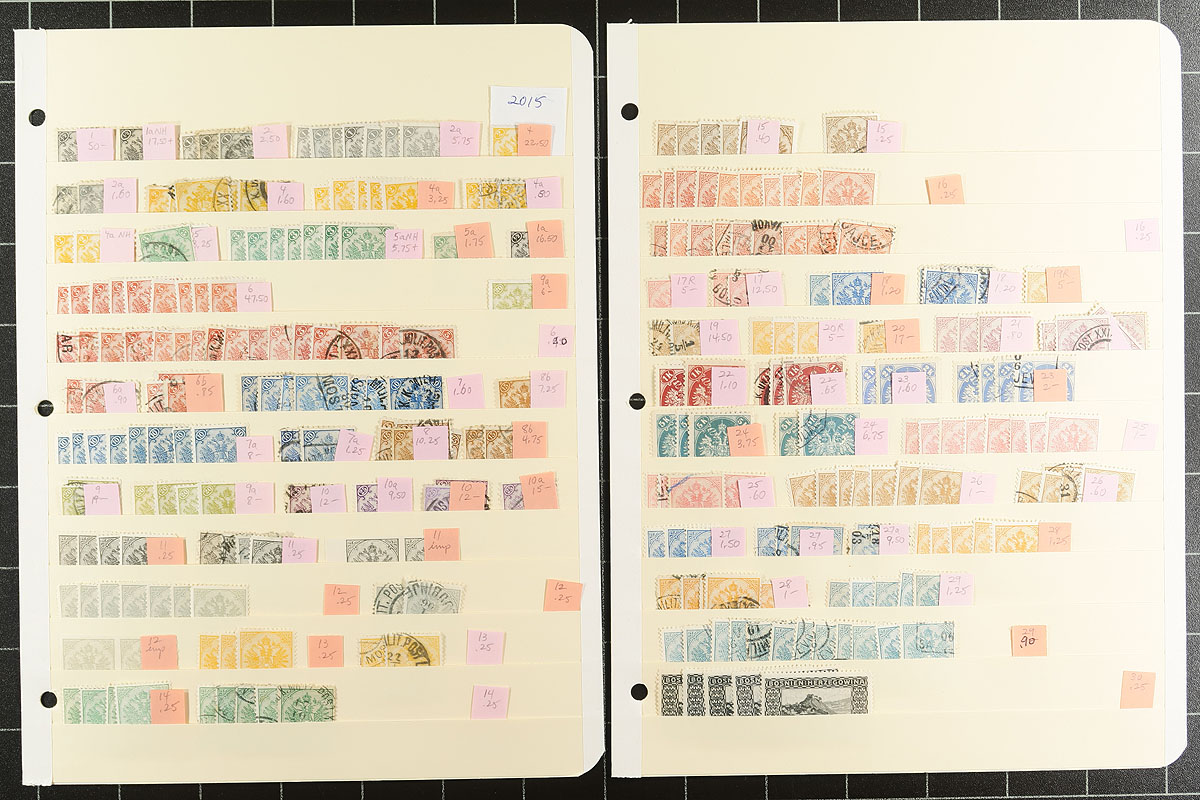 2015-
1
50-
1aNH
17.50+
2
3.50
2a
5.75
4
22.50
2a
1.60
4
1.60
4a
3.25
4a
.80
4aNH
5
5aNH
5.75+
5a
1.75
1a
16.50
6
47.50
9a
6-
6
.40
6a
.90
6b
.85
7
1.60
8b
7.25
7a
8-
7a
1.25
8
10.25
8b
4.75
9
9a
8-
10
12-
10a
9.50
10
12-
10a
15-
11
.25
11
.25
11
imp
12
.25
12
.25
12
imp
13
.25
13
.25
14
.25
14
.25
15
.40
15
.25
16
.25
16
.25
17R
5-
17
12.50
18
1.20
18
1.20
19R
5-
19
14.50
20R
5-
20
17-
21
.80
22
1.10
22
.65
23
1.60
23
24
3.75
24
6.75
25
7-
25
.60
26
1-
26
.60
27
1.50
27
.95
27a
9.50
28
1.25
28
1-
29
1.25
29
.90
BOSNIEN-HERZEGOWINA
32
.25